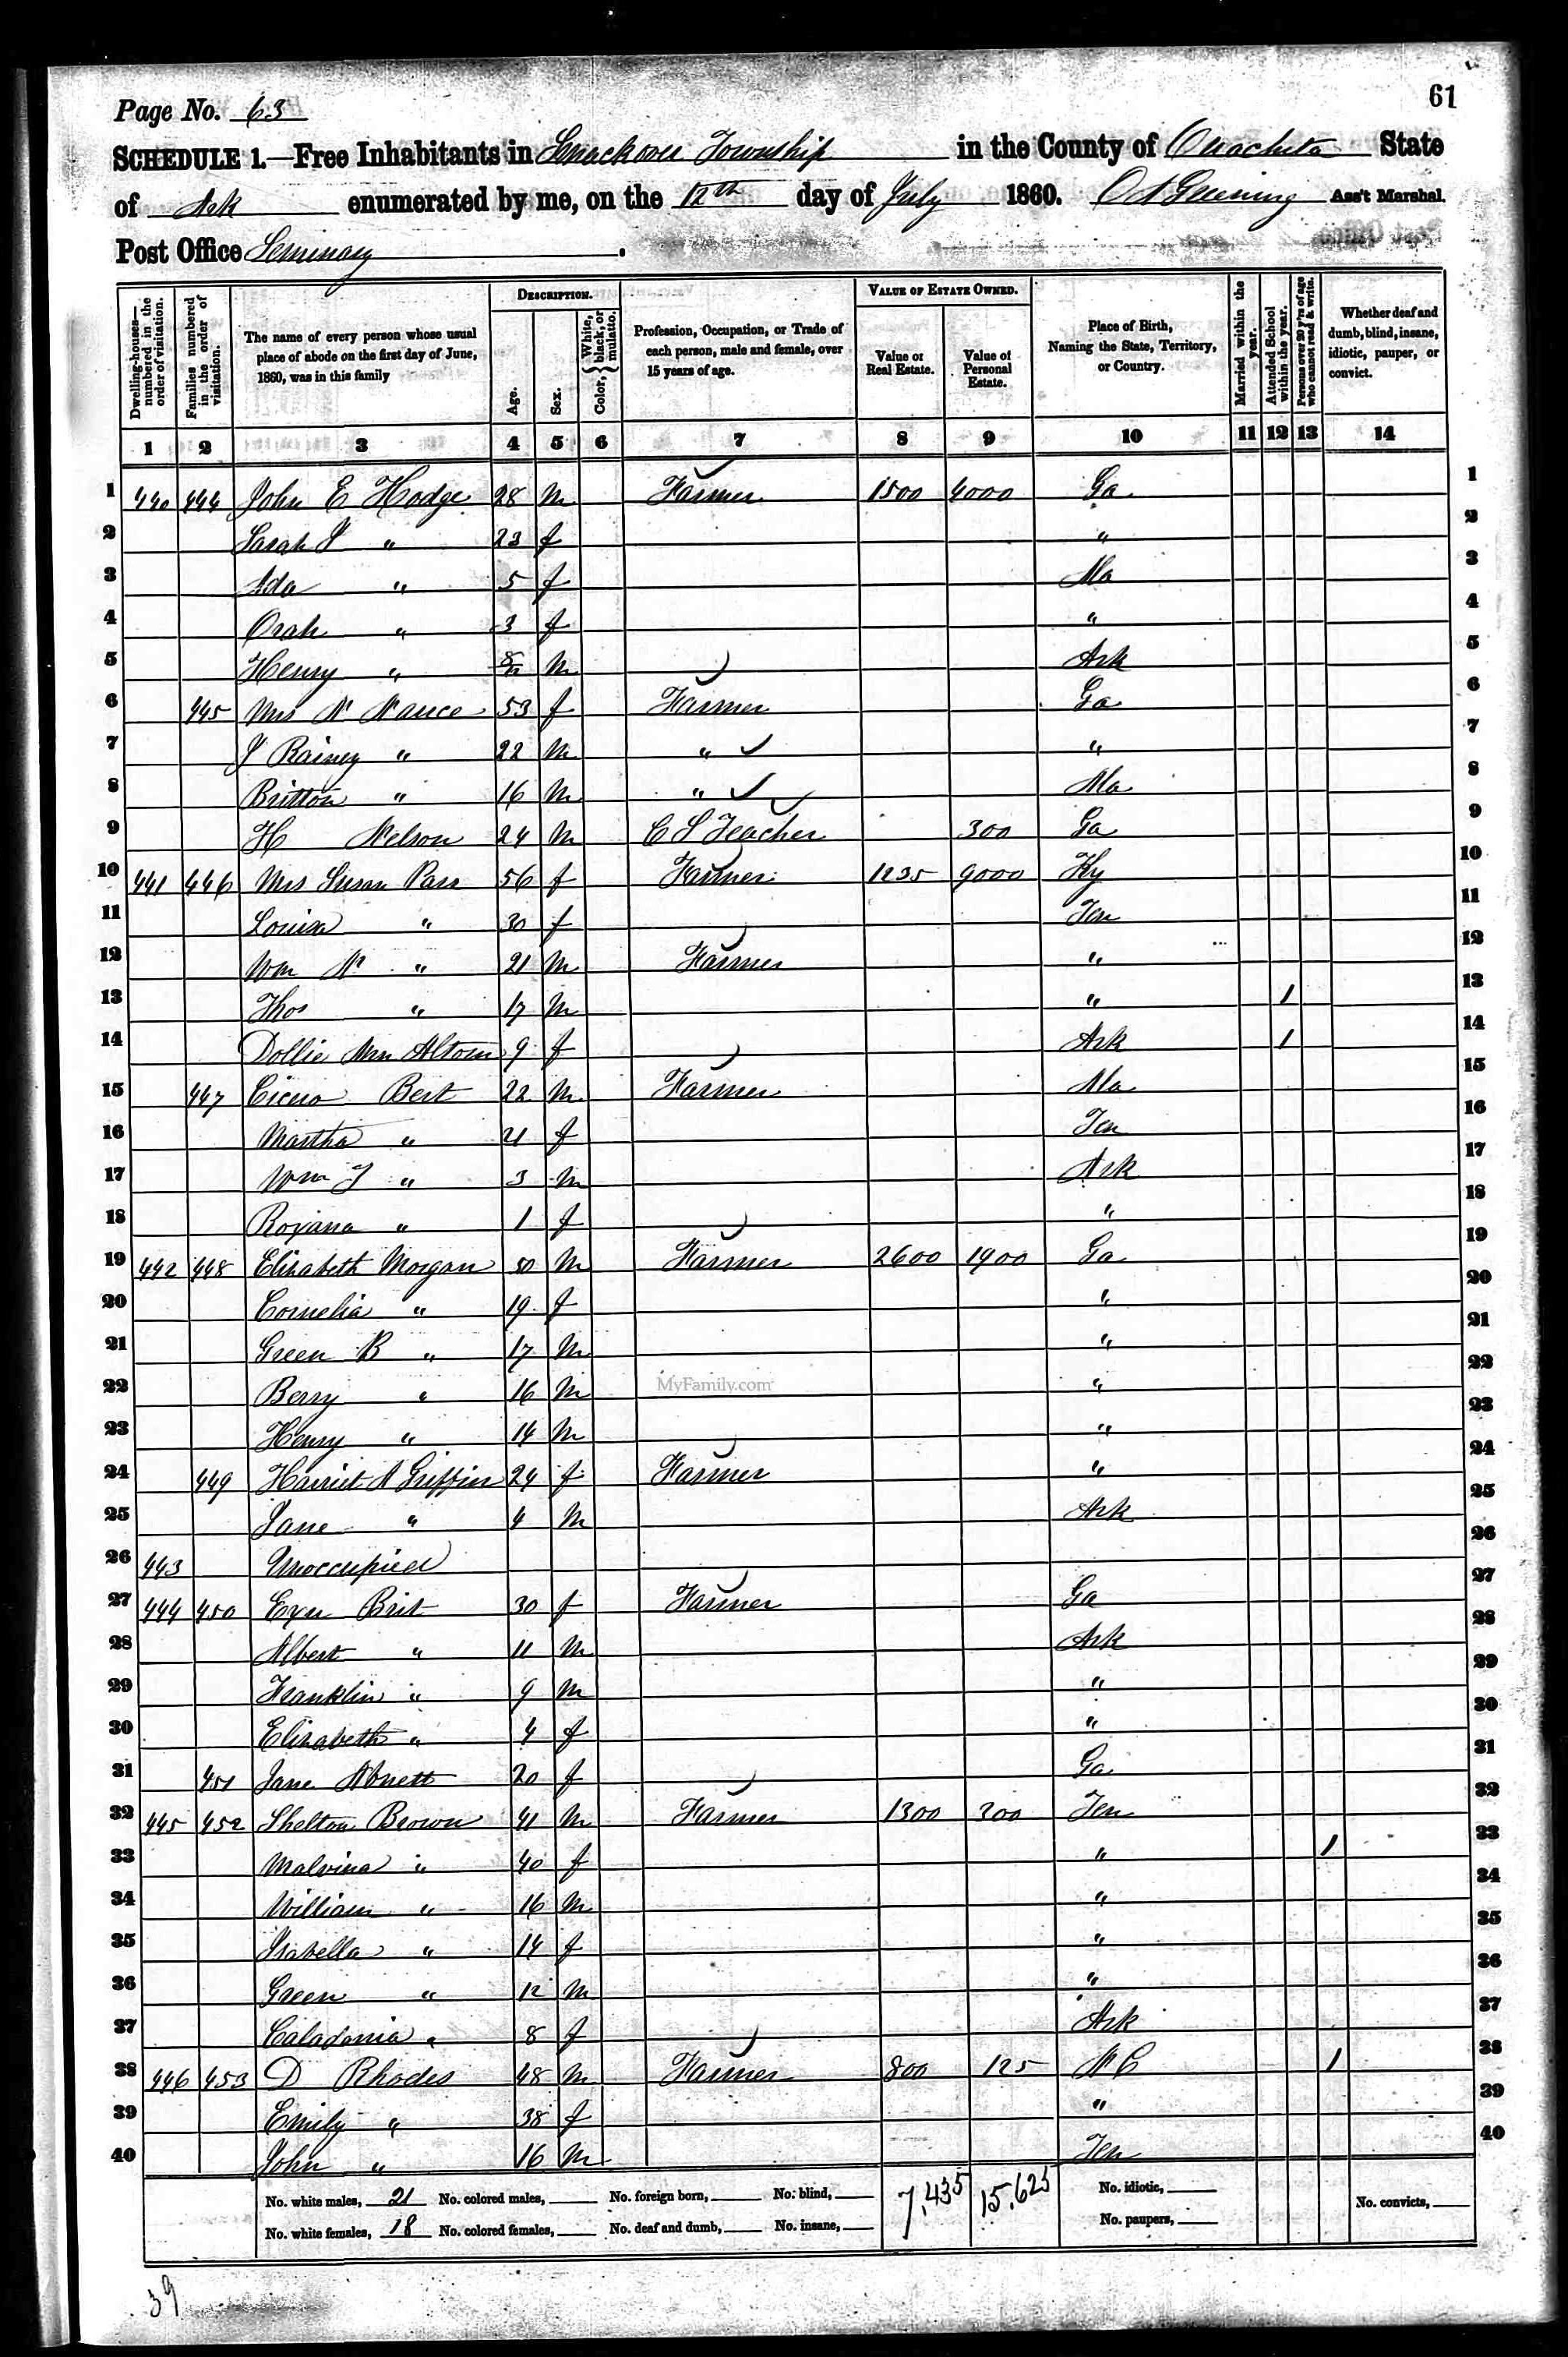 61
Page No. 63
SCHEDULE 1.—Free Inhabitants in Smackover Township in the County of Ouachita State
of Ark enumerated by me, on the 12th day of July 1860. Ass't Marshal.
Post Office Seminary.
Dwelling-houses—numbered in the order of visitation.
Families numbered in the order of visitation.
The name of every person whose usual place of abode on the first day of June, 1860, was in this family
DESCRIPTION.
Age.
Sex.
Color, { White, black, or mulatto.
Profession, Occupation, or Trade of each person, male and female, over 15 years of age.
VALUE OF ESTATE OWNED.
Value of Real Estate.
Value of Personal Estate.
Place of Birth, Naming the State, Territory, or Country.
Married within the year.
Attended School within the year.
Persons over 20 y'rs of age who cannot read & write.
Whether deaf and dumb, blind, insane, idiotic, pauper, or convict.
1 2 3 4 5 6 7 8 9 10 11 12 13 14
1 440 444 John E Hodge 28 m Farmer 1500 4000 Ga 1
2 Sarah J " 23 f " 2
3 Ada " 5 f Ala 3
4 Orah " 3 f " 4
5 Henry " 8/12 m Ark 5
6 445 Mrs N Nance 53 f Farmer Ga 6
7 J Rainey " 22 m " " 7
8 Britton " 16 m " Ala 8
9 H Nelson 24 m C S Teacher 300 Ga 9
10 441 446 Mrs Susan Pass 56 f Farmer 1235 9000 Ky 10
11 Louisa " 30 f Ten 11
12 Wm N " 21 m Farmer " 12
13 Thos " 17 m " 1 13
14 Dollie Altom 9 f Ark 1 14
15 447 Cicero Bert 22 m Farmer Ala 15
16 Martha " 21 f Ten 16
17 Wm J " 3 m Ark 17
18 Roxana " 1 f " 18
19 442 448 Elizabeth Morgan 50 m Farmer 2600 1900 Ga 19
20 Cornelia " 19 f " 20
21 Green B " 17 m " 21
22 Berry " 16 m " 22
MyFamily.com
23 Henry " 14 m " 23
24 449 Harriet A Griffin 24 f Farmer " 24
25 Jane " 4 m Ark 25
26 443 Unoccupied 26
27 444 450 Brit 30 f Farmer Ga 27
28 Albert " 11 m Ark 28
29 Franklin " 9 m " 29
30 Elizabeth " 4 f " 30
31 451 Jane Abnett 20 f Ga 31
32 445 452 Shelton Brown 41 m Farmer 1300 300 Ten 32
33 Malvina " 40 f " 1 33
34 William " 16 m " 34
35 Isabella " 14 f " 35
36 Green " 12 m " 36
37 Caladonia " 8 f Ark 37
38 446 453 D Rhodes 48 m Farmer 800 125 N C 1 38
39 Emily " 38 f " 39
40 John " 16 m Ten 40
No. white males, 21 No. colored males, No. foreign born, No. blind, 7,435 15,625 No. idiotic, No. convicts,
No. white females, 18 No. colored females, No. deaf and dumb, No. insane, No. paupers,
39